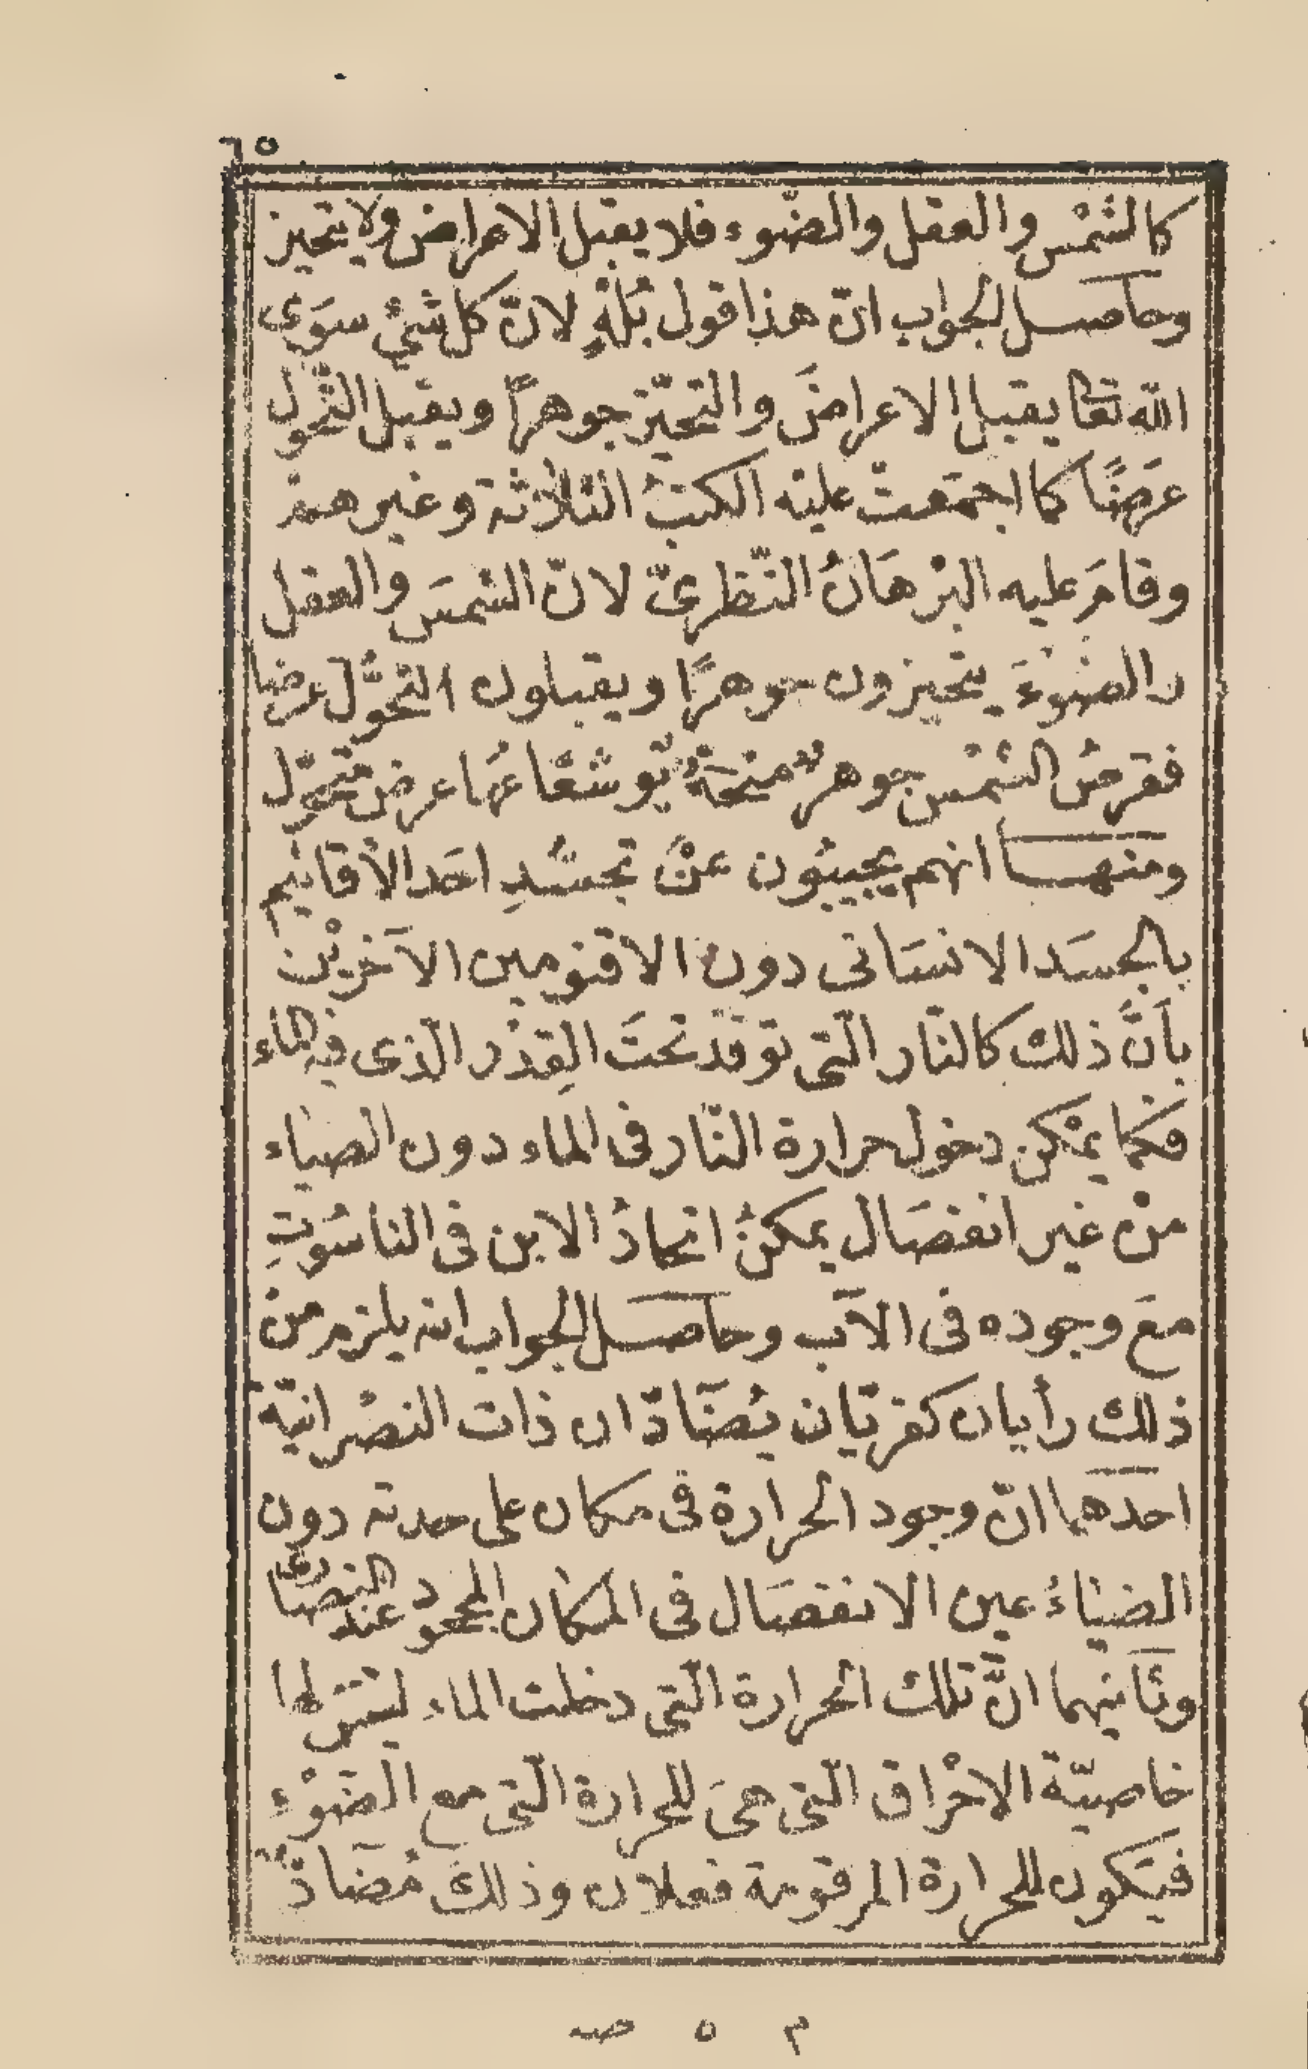 ٦٥
كالشّمْس والعقل والضّوء فلا يقبل الاعراض ولا يتحيز
وحاصل الجواب انّ هذا قول بُلْهٍ لانّ كل شئٍ سوَى
الله تعا يقبل الاعراضَ والتحيّز جوهرًا ويقبل التّحوّل
عرَضًا كما اجتمعتْ عليْه الكتبُ الثلاثة وغيرهمْ
وقامَ عليه البرْهَانُ النّظرىّ لانّ الشمسَ والعقل
والضوْءَ يتحيزون جوهرًا ويقبلون التحوُّل عرضا
فقرصُ الشمْس جوهرٌ منحىٌّ وشعَاعُها عرض متحوّل
ومنها انهم يجيبُون عنْ تجسُّدِ احَد الأقانيم
بالجسَد الانسَانى دون الاقنومين الآخريْن
بأنَّ ذلك كالنّار الّتى توقدُ تحتَ القِدْر الّذى فيه الماء
فكما يمْكن دخول حرارة النّار فى الماء دون الضياء
منْ غير انفصَال يمكنُ اتحادُ الابن فى الناسُوتِ
معَ وجوده فى الآب وحاصل الجواب انه يلزم منْ
ذلك رأيان كفريّان يُضَادّان ذات النصْرانيّة
احَدهما انّ وجود الحرارة فى مكان على حدته دون
الضيَاءُ عين الانفصَال فى المكان المجحود عند النصارى
وثَانيهما انَّ تلك الحرارة الّتى دخلت الماء ليسَ لها
خاصيّة الاحْراق الّتى هىَ للحرارة الّتى مع الضوْء
فيَكون للحرارة المرقومة فعلان وذلكَ مُضَادّ
م ٥ صـ